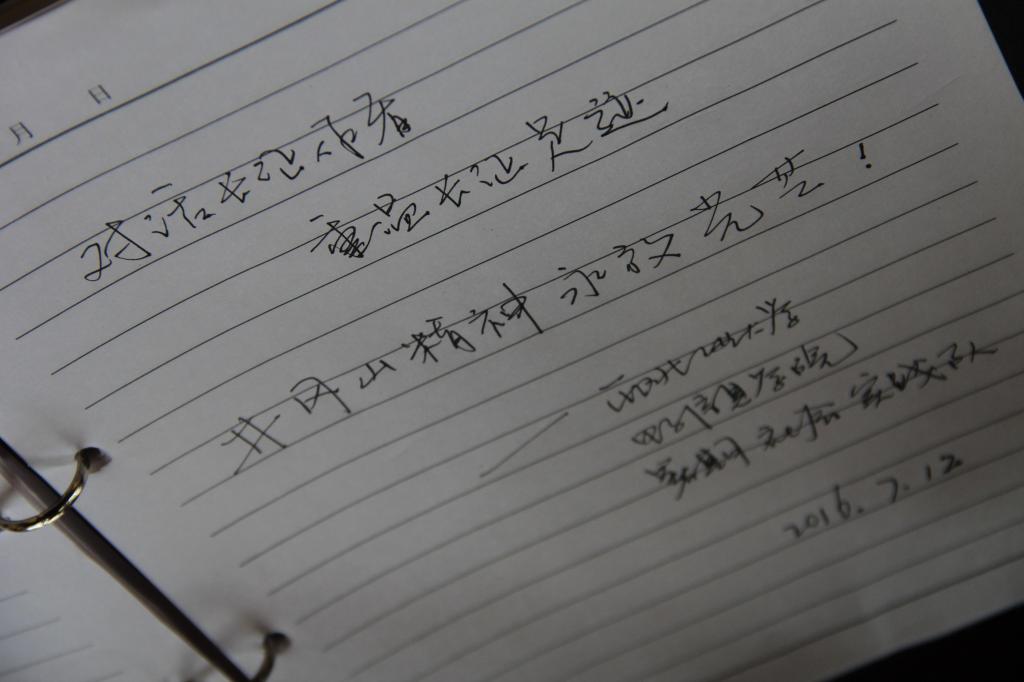 月 日
对话长征内者
重温长征足迹
井冈山精神永放光芒!
西北工业大学
学院
暑期社会实践队
2016.7.12